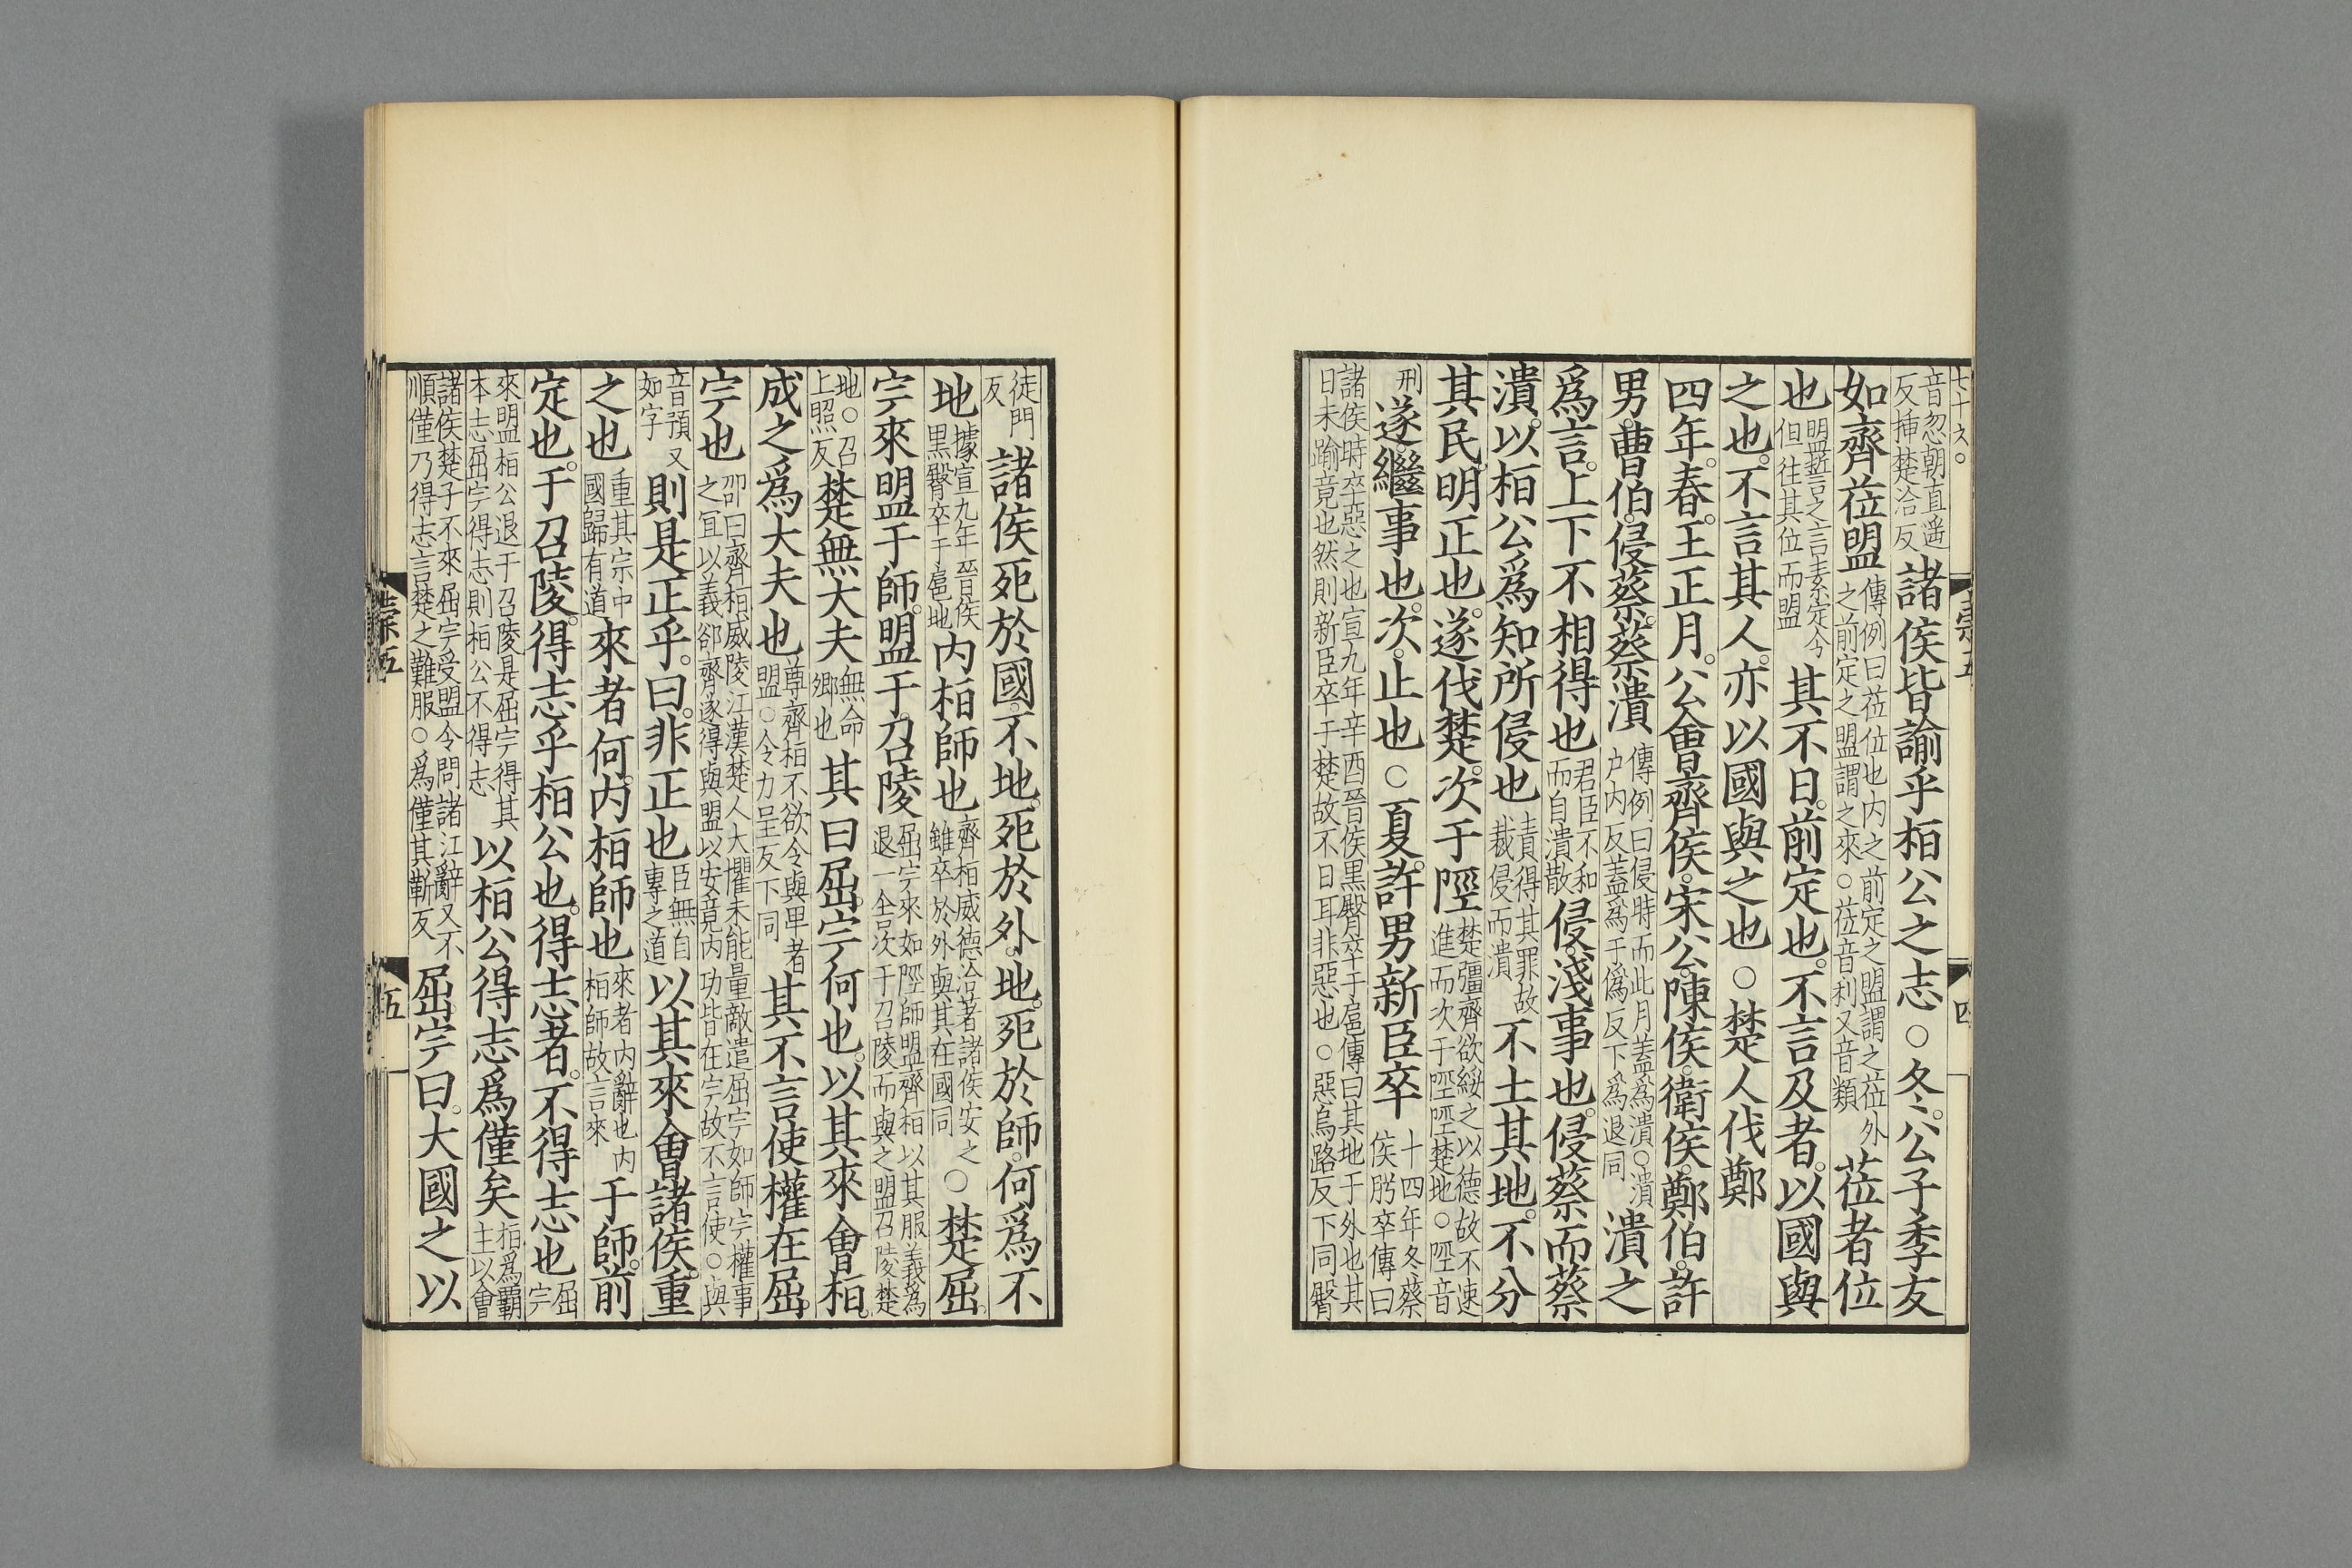 音忽朝直遥反揷楚洽反諸侯皆諭乎桓公之志○冬公子季友
如齊莅盟傳例曰莅位也内之前定之盟謂之莅外之前定之盟謂之來○莅音利又音類莅者位
也盟誓之言素定今但往其位而盟其不日前定也不言及者以國與
之也不言其人亦以國與之也○楚人伐鄭
四年春王正月公會齊侯宋公陳侯衛侯鄭伯許
男曹伯侵蔡蔡潰傳例曰侵時而此月蓋為潰○潰户内反蓋為于偽反下為退同潰之
爲言上下不相得也君臣不和而自潰散侵淺事也侵蔡而蔡
潰以桓公爲知所侵也責得其罪故裁侵而潰不土其地不分
其民明正也遂伐楚次于陘楚彊齊欲綏之以德故不速進而次于陘陘楚地○陘音
刑遂繼事也次止也○夏許男新臣卒十四年冬蔡侯肹卒傳曰
諸侯時卒惡之也宣九年辛酉晉侯黑臀卒于扈傳曰其地于外也其日未踰竟也然則新臣卒于楚故不日耳非惡也○惡烏路反下同臀
徒門反諸侯死於國不地死於外地死於師何爲不
地據宣九年晉侯黑臀卒于扈地内桓師也齊桓威德洽著諸侯安之雖卒於外與其在國同○楚屈
完來盟于師盟于召陵屈完來如陘師盟齊桓以其服義為退一舍次于召陵而與之盟召陵楚
地○召上照反楚無大夫無命卿也其曰屈完何也以其來會桓
成之爲大夫也尊齊桓不欲令與卑者盟○令力呈反下同其不言使權在屈
完也卲曰齊桓威陵江漢楚人大懼未能量敵遣屈完如師完權事之宜以義卻齊遂得與盟以安竟内功皆在完故不言使○與
音預又如字則是正乎曰非正也臣無自專之道以其來會諸侯重
之也重其宗中國歸有道來者何内桓師也來者内辭也内桓師故言來于師前
定也于召陵得志乎桓公也得志者不得志也屈完
來盟桓公退于召陵是屈完得其本志屈完得志則桓公不得志以桓公得志爲僅矣桓為霸主以會
諸侯楚子不來屈完受盟令問諸江辭又不順僅乃得志言楚之難服○為僅其靳反屈完曰大國之以
崇五
四
崇五
五